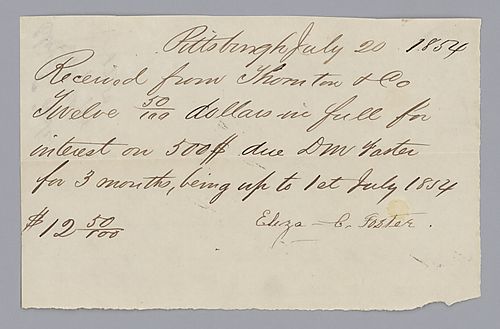 Pittsburgh July 20 1854
Received from Thornton & Co
Twelve 50/100 dollars in full for
interest on 500$ due D M Foster
for 3 months, being up to 1st July 1854
$12 50/100 Eliza C. Foster.